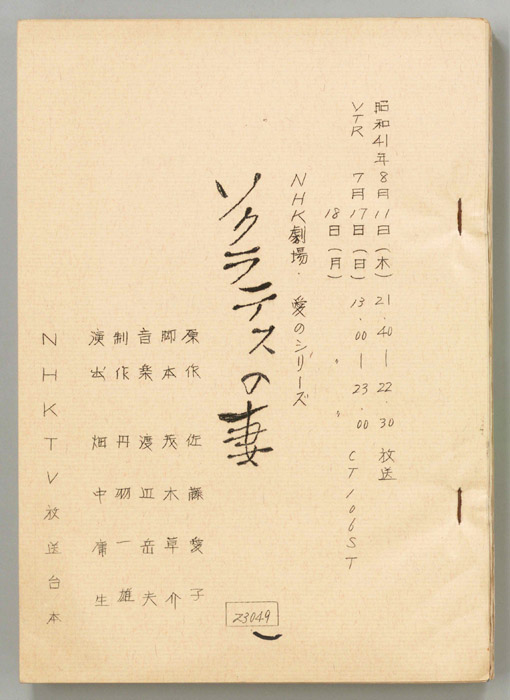 昭和41年8月11日(木) 21.40—22.30 放送
VTR 7月17日(日) 13.00—23.00 CT106ST
18日(月) 〃 〃
NHK劇場・愛のシリーズ
ソクラテスの妻
原作 佐藤愛子
脚本 茂木草介
音楽 渡辺岳夫
制作 丹羽一雄
演出 畑中庸生
NHKTV放送台本
Z3049